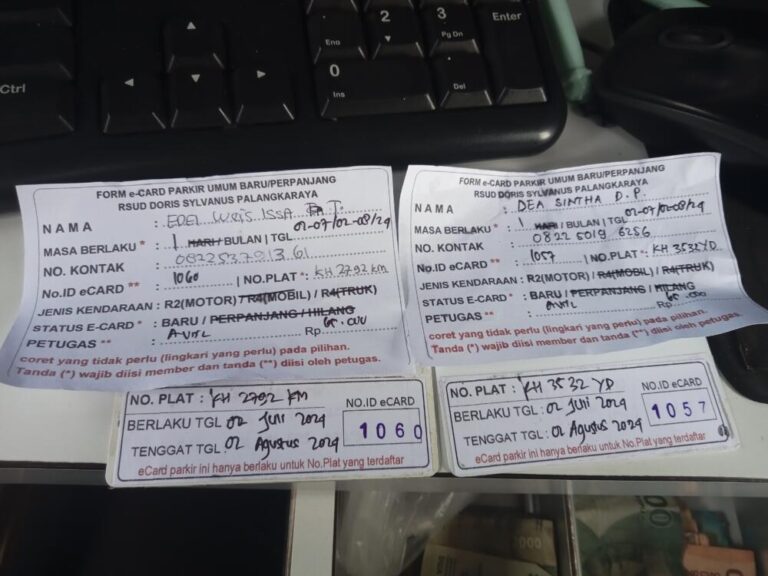 Ctrl
2
3
Pg Dn
Enter
0
Ins
Del
FORM e-CARD PARKIR UMUM BARU/PERPANJANG
RSUD DORIS SYLVANUS PALANGKARAYA
NAMA :
MASA BERLAKU * : 1 HARI / BULAN | TGL 02-07/02-08/24
NO. KONTAK :
No.ID eCARD ** : 1060 | NO.PLAT * : KH 2792 KM
JENIS KENDARAAN : R2(MOTOR) / R4(MOBIL) / R4(TRUK)
STATUS E-CARD * : BARU / PERPANJANG / HILANG
PETUGAS ** : Rp 65.000
coret yang tidak perlu (lingkari yang perlu) pada pilihan.
Tanda (*) wajib diisi member dan tanda (**) diisi oleh petugas.
NO. PLAT : KH 2792 KM
BERLAKU TGL : 02 Juli 2024
TENGGAT TGL : 02 Agustus 2024
NO.ID eCARD
1060
eCard parkir ini hanya berlaku untuk No.Plat yang terdaftar
FORM e-CARD PARKIR UMUM BARU/PERPANJANG
RSUD DORIS SYLVANUS PALANGKARAYA
NAMA : DEA SINTHA D.P.
MASA BERLAKU * : 1 HARI / BULAN | TGL 02-07/02-08/24
NO. KONTAK : 0822 5019 6256
No.ID eCARD ** : 1057 | NO.PLAT * : KH 3532 YD
JENIS KENDARAAN : R2(MOTOR) / R4(MOBIL) / R4(TRUK)
STATUS E-CARD * : BARU / PERPANJANG / HILANG
PETUGAS ** : Rp 65.000
coret yang tidak perlu (lingkari yang perlu) pada pilihan.
Tanda (*) wajib diisi member dan tanda (**) diisi oleh petugas.
NO. PLAT : KH 3532 YD
BERLAKU TGL : 02 Juli 2024
TENGGAT TGL : 02 Agustus 2024
NO.ID eCARD
1057
eCard parkir ini hanya berlaku untuk No.Plat yang terdaftar